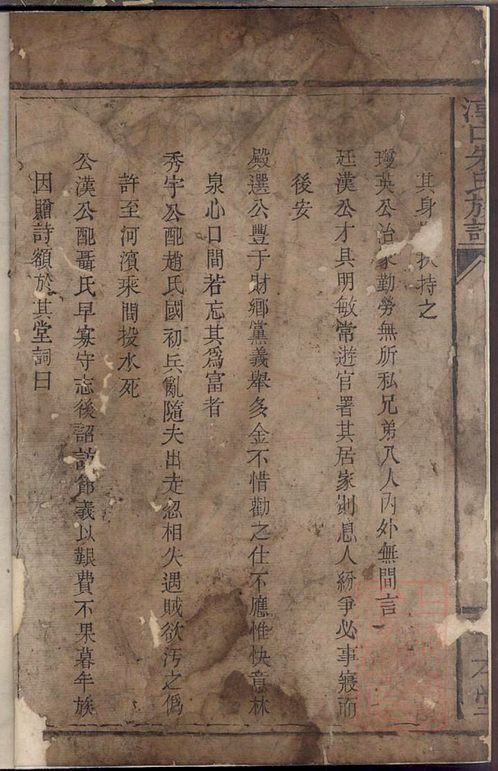 淳口朱氏族譜
其身 扶持之
瓊英公治家勤勞無所私兄弟八人內外無間言
廷漢公才具明敏常遊官署其居家則息人紛爭必事寢而
後安
殿選公豐于財鄉黨義舉多金不惜勸之仕不應惟快意林
泉心口間若忘其為富者
秀宇公配趙氏國初兵亂隨夫出走忽相失遇賊欲汚之僞
許至河濱乘間投水死
公漢公配聶氏早寡守志後詔訪節義以艱費不果暮年族
因贈詩額於其堂詞曰